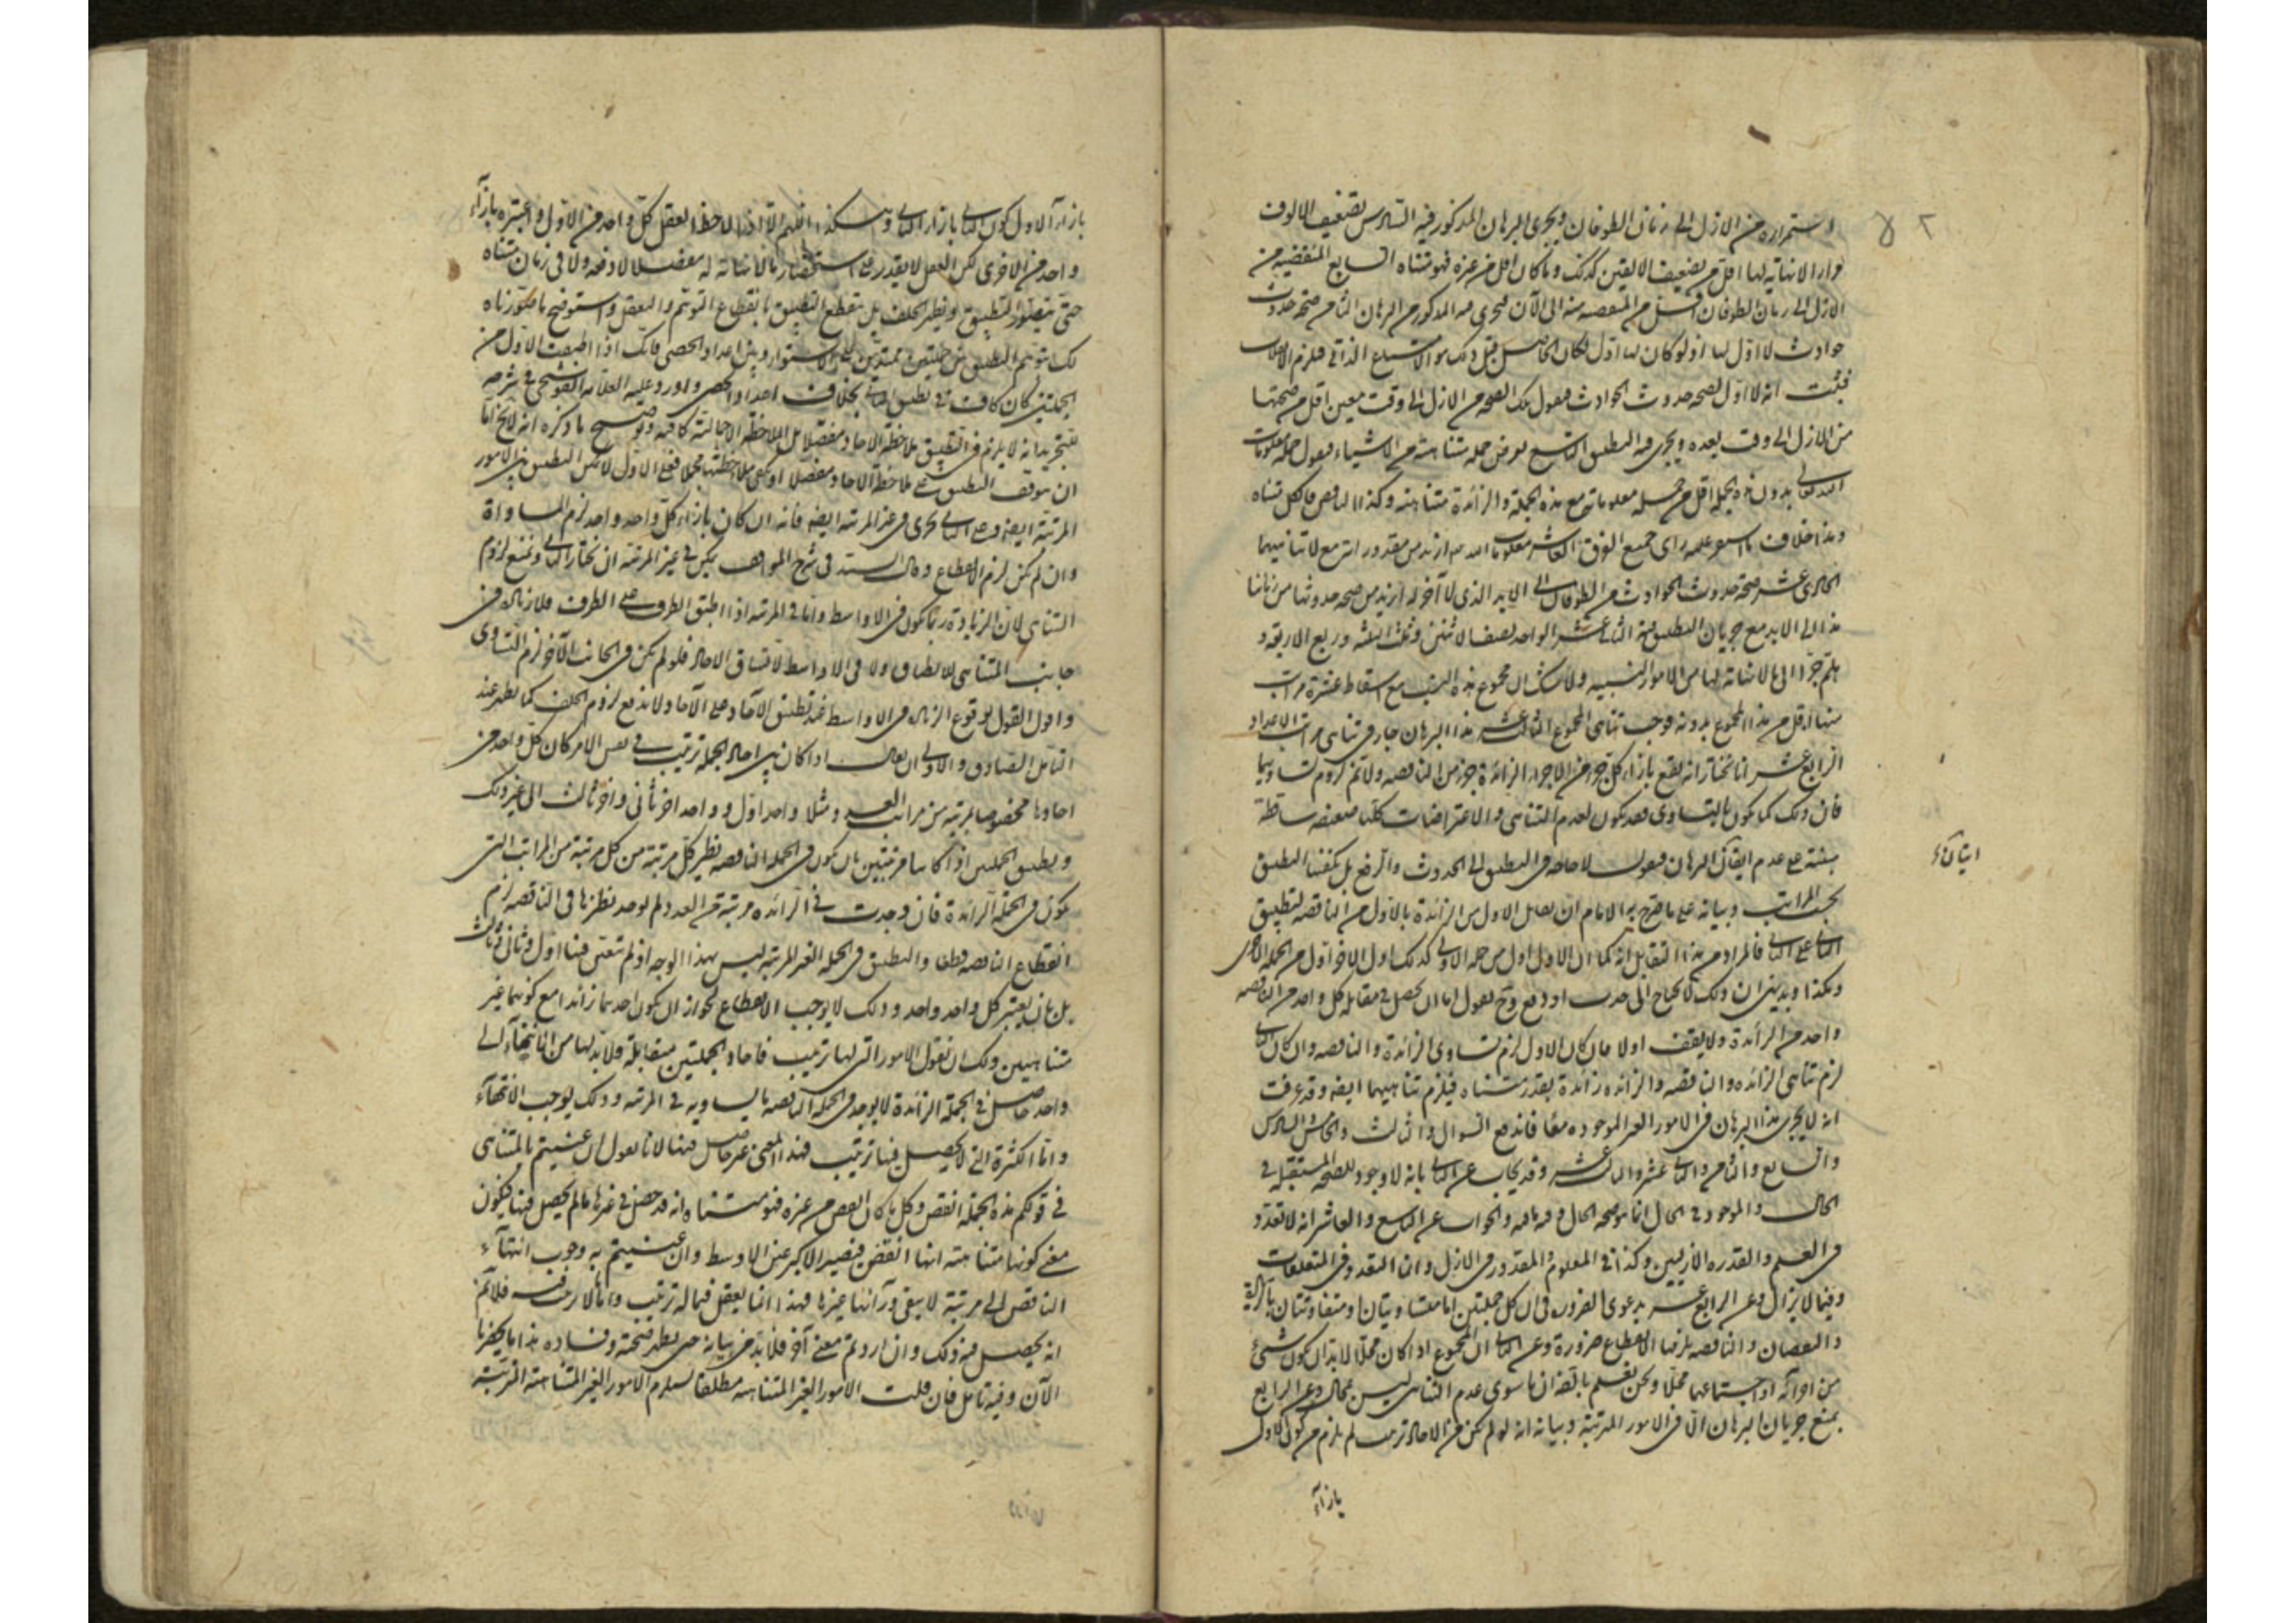 استمراره من الازل الى زمان الطوفان ويجرى البرهان المذكور فيه السادس تضعيف الالوف
مرارا لا نهاية لها اقل من تضعيف الالفين كذلك وما كان اقل من غيره فهو متناه السابع المنقضية من
الازل الى زمان الطوفان اقل من المنقضية منه الى الآن فيجرى فيه المذكور من البرهان الثامن صحة حدوث
حوادث لا اول لها اذ لو كان لها اول لكان الحاصل قبل ذلك هو الامتناع الذاتى فيلزم الانقلاب
فثبت انه لا اول لصحة حدوث الحوادث فنقول تلك الصحة من الازل الى وقت معين اقل من صحتها
من الازل الى وقت بعده ويجرى فيه التطبيق التاسع نفرض جملة متناهية من الاشياء فنقول جملة معلومات
الله تعالى بدون هذه الجملة اقل من جملة معلوماته مع هذه الجملة والزائدة متناهية وكذا الناقص فالكل متناه
وهذا خلاف ما استقر عليه راى جميع الفرق العاشر معلومات الله ازيد من مقدوراته مع لا تناهيهما
الحادى عشر صحة حدوث الحوادث من الطوفان الى الابد الذى لا آخر له ازيد من صحة حدوثها من زماننا
هذا الى الابد مع جريان التطبيق فيه الثانى عشر الواحد نصف الاثنين وثلث الثلثة وربع الاربعة و
هلم جرا الى ما لا نهاية لها من الامور النسبية ولا شك ان مجموع هذه النسب مع اسقاط عشرة مراتب
منها اقل من هذا المجموع بدونه فوجب تناهى المجموع الثالث عشر هذا البرهان جار فى تناهى مراتب الاعداد
الرابع عشر انا نختار انه يقع بازاء كل جزء من الاجزاء الزائدة جزء من الناقصة ولا تم لزوم تساويهما
فان ذلك كما يكون بالتساوى فقد يكون لعدم التناهى والاعتراضات كلها ضعيفة ساقطة
مبنية على عدم اتقان البرهان فنقول لا حاجة فى التطبيق الى الحدوث والرفع بل يكفينا التطبيق
بحسب المراتب وبيانه على ما صرح به الامام ان يقابل الاول من الزائدة بالاول من الناقصة لتطبيق
الثانى على الثانى فالمراد من هذا التقابل انه كما ان الاول اول من جملة الاولى كذلك اول الآخر اول من الجملة الاخرى
وهكذا وبديهى ان ذلك لا يحتاج الى حدب او دفع وح نقول اما ان يحصل فى مقابلة كل واحد من الناقصة
واحد من الزائدة ولا يقف اولا فان كان الاول لزم تساوى الزائدة والناقصة وان كان الثانى
لزم تناهى الزائدة والناقصة والزائدة زائدة بقدر متناه فيلزم تناهيهما ايضا وقد عرفت
انه لا يجرى هذا البرهان فى الامور الغير الموجودة معا فاندفع السوال والثالث والخامس والسادس
والسابع والثامن والثانى عشر والثالث عشر وقد يجاب عن الثانى بانه لا وجود للصحة المستقبلة فى
الحال والموجود فى الحال انما هو صحة الحال وفيه ما فيه والجواب عن التاسع والعاشر انه لا تعدد
فى العلم والقدرة الازليين وكذا فى المعلوم والمقدور فى الازل وانما التعدد فى المتعلقات
وفيما لا يزال وعن الرابع عشر بدعوى الضرورة فى ان كل جملتين اما متساويتان او متفاوتتان بالزيادة
والنقصان والناقصة يلزمها الانقطاع ضرورة وعن الثانى ان المجموع اذا كان محالا لا بد ان يكون شىء
من اجزائه او اجتماعها محالا ونحن نعلم بالضرورة ان ما سوى عدم التناهى ليس بمحال وعن الرابع
بمنع جريان البرهان الا فى الامور المرتبة وبيانه انه لو لم يكن من الآحاد ترتيب لم يلزم من كون الاول
بازاء
بازاء الاول كون الثانى بازاء الثانى وهكذا اللهم الا اذا لاحظ العقل كل واحد من الاولى واعتبره بازاء
واحد من الاخرى لكن العقل لا يقدر على استحضار ما لا نهاية له مفصلا لا دفعة ولا فى زمان متناه
حتى يتصور التطبيق ويظهر الخلف بل ينقطع التطبيق بانقطاع التوهم والتعقل واستوضح ما صورناه
لك بتوهم التطبيق بين جبلين ممتدين على الاستواء وبين اعداد الحصى فانك اذا اطبقت الاول من
الجبلين كان كافيا فى تطبيق الثانى بخلاف اعداد الحصى واورد عليه العلامة القوشجى فى شرحه
للتجريد انه لا يلزم فى التطبيق ملاحظة الآحاد مفصلا بل الملاحظة الاجمالية كافية وتوضيح ما ذكره انه لا يخ اما
ان يتوقف التطبيق على ملاحظة الآحاد مفصلا او يكفى ملاحظتها مجملا فعلى الاول لا يمكن التطبيق فى الامور
المرتبة ايضا وعلى الثانى يجرى فى غير المرتبة ايضا فانه ان كان بازاء كل واحد واحد لزم المساواة
وان لم يكن لزم الانقطاع وقال السيد فى شرح المواقف يمكن فى غير المرتبة ان نختار الثانى ونمنع لزوم
التناهى لان الزيادة ربما يكون فى الاواسط واما فى المرتبة اذا اطبق الطرف على الطرف فلا زيادة فى
جانب المتناهى للانطباق ولا فى الاواسط لاتساق الآحاد فلو لم يكن فى الجانب الآخر لزم التساوى
واقول القول بوقوع الزيادة فى الاواسط عند تطبيق الآحاد على الآحاد لا يدفع لزوم الخلف كما يظهر عند
التامل الصادق والاولى ان يقال اذا كان بين آحاد الجملة ترتيب فى نفس الامر كان كل واحد من
آحادها مخصوصا بمرتبة من مراتب العدد مثلا واحد اول وواحد آخر ثانى وآخر ثالث الى غير ذلك
وتطبيق الجملتين اذا كانتا مرتبتين بان يكون فى الجملة الناقصة نظير كل مرتبة من كل مرتبة من المراتب التى
يكون فى الجملة الزائدة فان وجدت فى الزائدة مرتبة من العدد لم يوجد نظيرها فى الناقصة لزم
انقطاع الناقصة قطعا والتطبيق فى الجملة الغير المرتبة ليس بهذا الوجه اذ لم يتعين فيها اول وثانى وثالث
بل بان يعتبر كل واحد واحد وذلك لا يوجب الانقطاع لجواز ان يكون احدهما زائدا مع كونهما غير
متناهيين ولك ان تقول الامور التى لها ترتيب فآحاد الجملتين متقابلة فلا بد لها من انتهاء الى
واحد حاصل فى الجملة الزائدة لا يوجد فى الجملة الناقصة ما يساويه فى المرتبة وذلك يوجب الانتهاء
واما الكثرة التى لا يحصل فيها ترتيب فهذا المعنى غير حاصل فيها لانا نقول ان عنيتم بالمتناهى
فى قولكم هذه الجملة انقص وكل ما كان انقص من غيره فهو متناه انه قد حصل فى غيرها ما لم يحصل فيها فيكون
معنى كونها متناهية انها انقص فيصير الاكبر عين الاوسط وان عنيتم به وجوب انتهاء
الناقص الى مرتبة لا يبقى ورائها غيرها فهذا انما يعقل فيما له ترتيب واما ما لا ترتيب فيه فلا تم
انه يحصل فيه ذلك وان اردتم معنى آخر فلا بد من بيانه حتى يظهر صحته وفساده هذا ما يحضرنا
الآن وفيه تامل فان قلت الامور الغير المتناهية مطلقا يستلزم الامور الغير المتناهية المرتبة